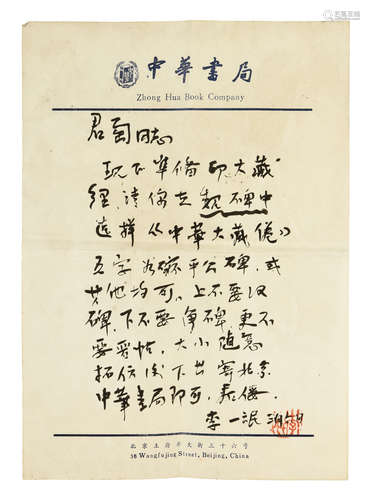 中華書局
Zhong Hua Book Company
君匋同志
现正準備印大藏
經,請你在魏碑中
选择《中華大藏經》
五字 平公碑,或
其他均可。上不要汉
碑,下不要唐碑,更不
要 帖,大小随意
寄北京
中華書局即可。
李一氓
北京王府井大街三十六号
36 Wangfujing Street, Beijing, China